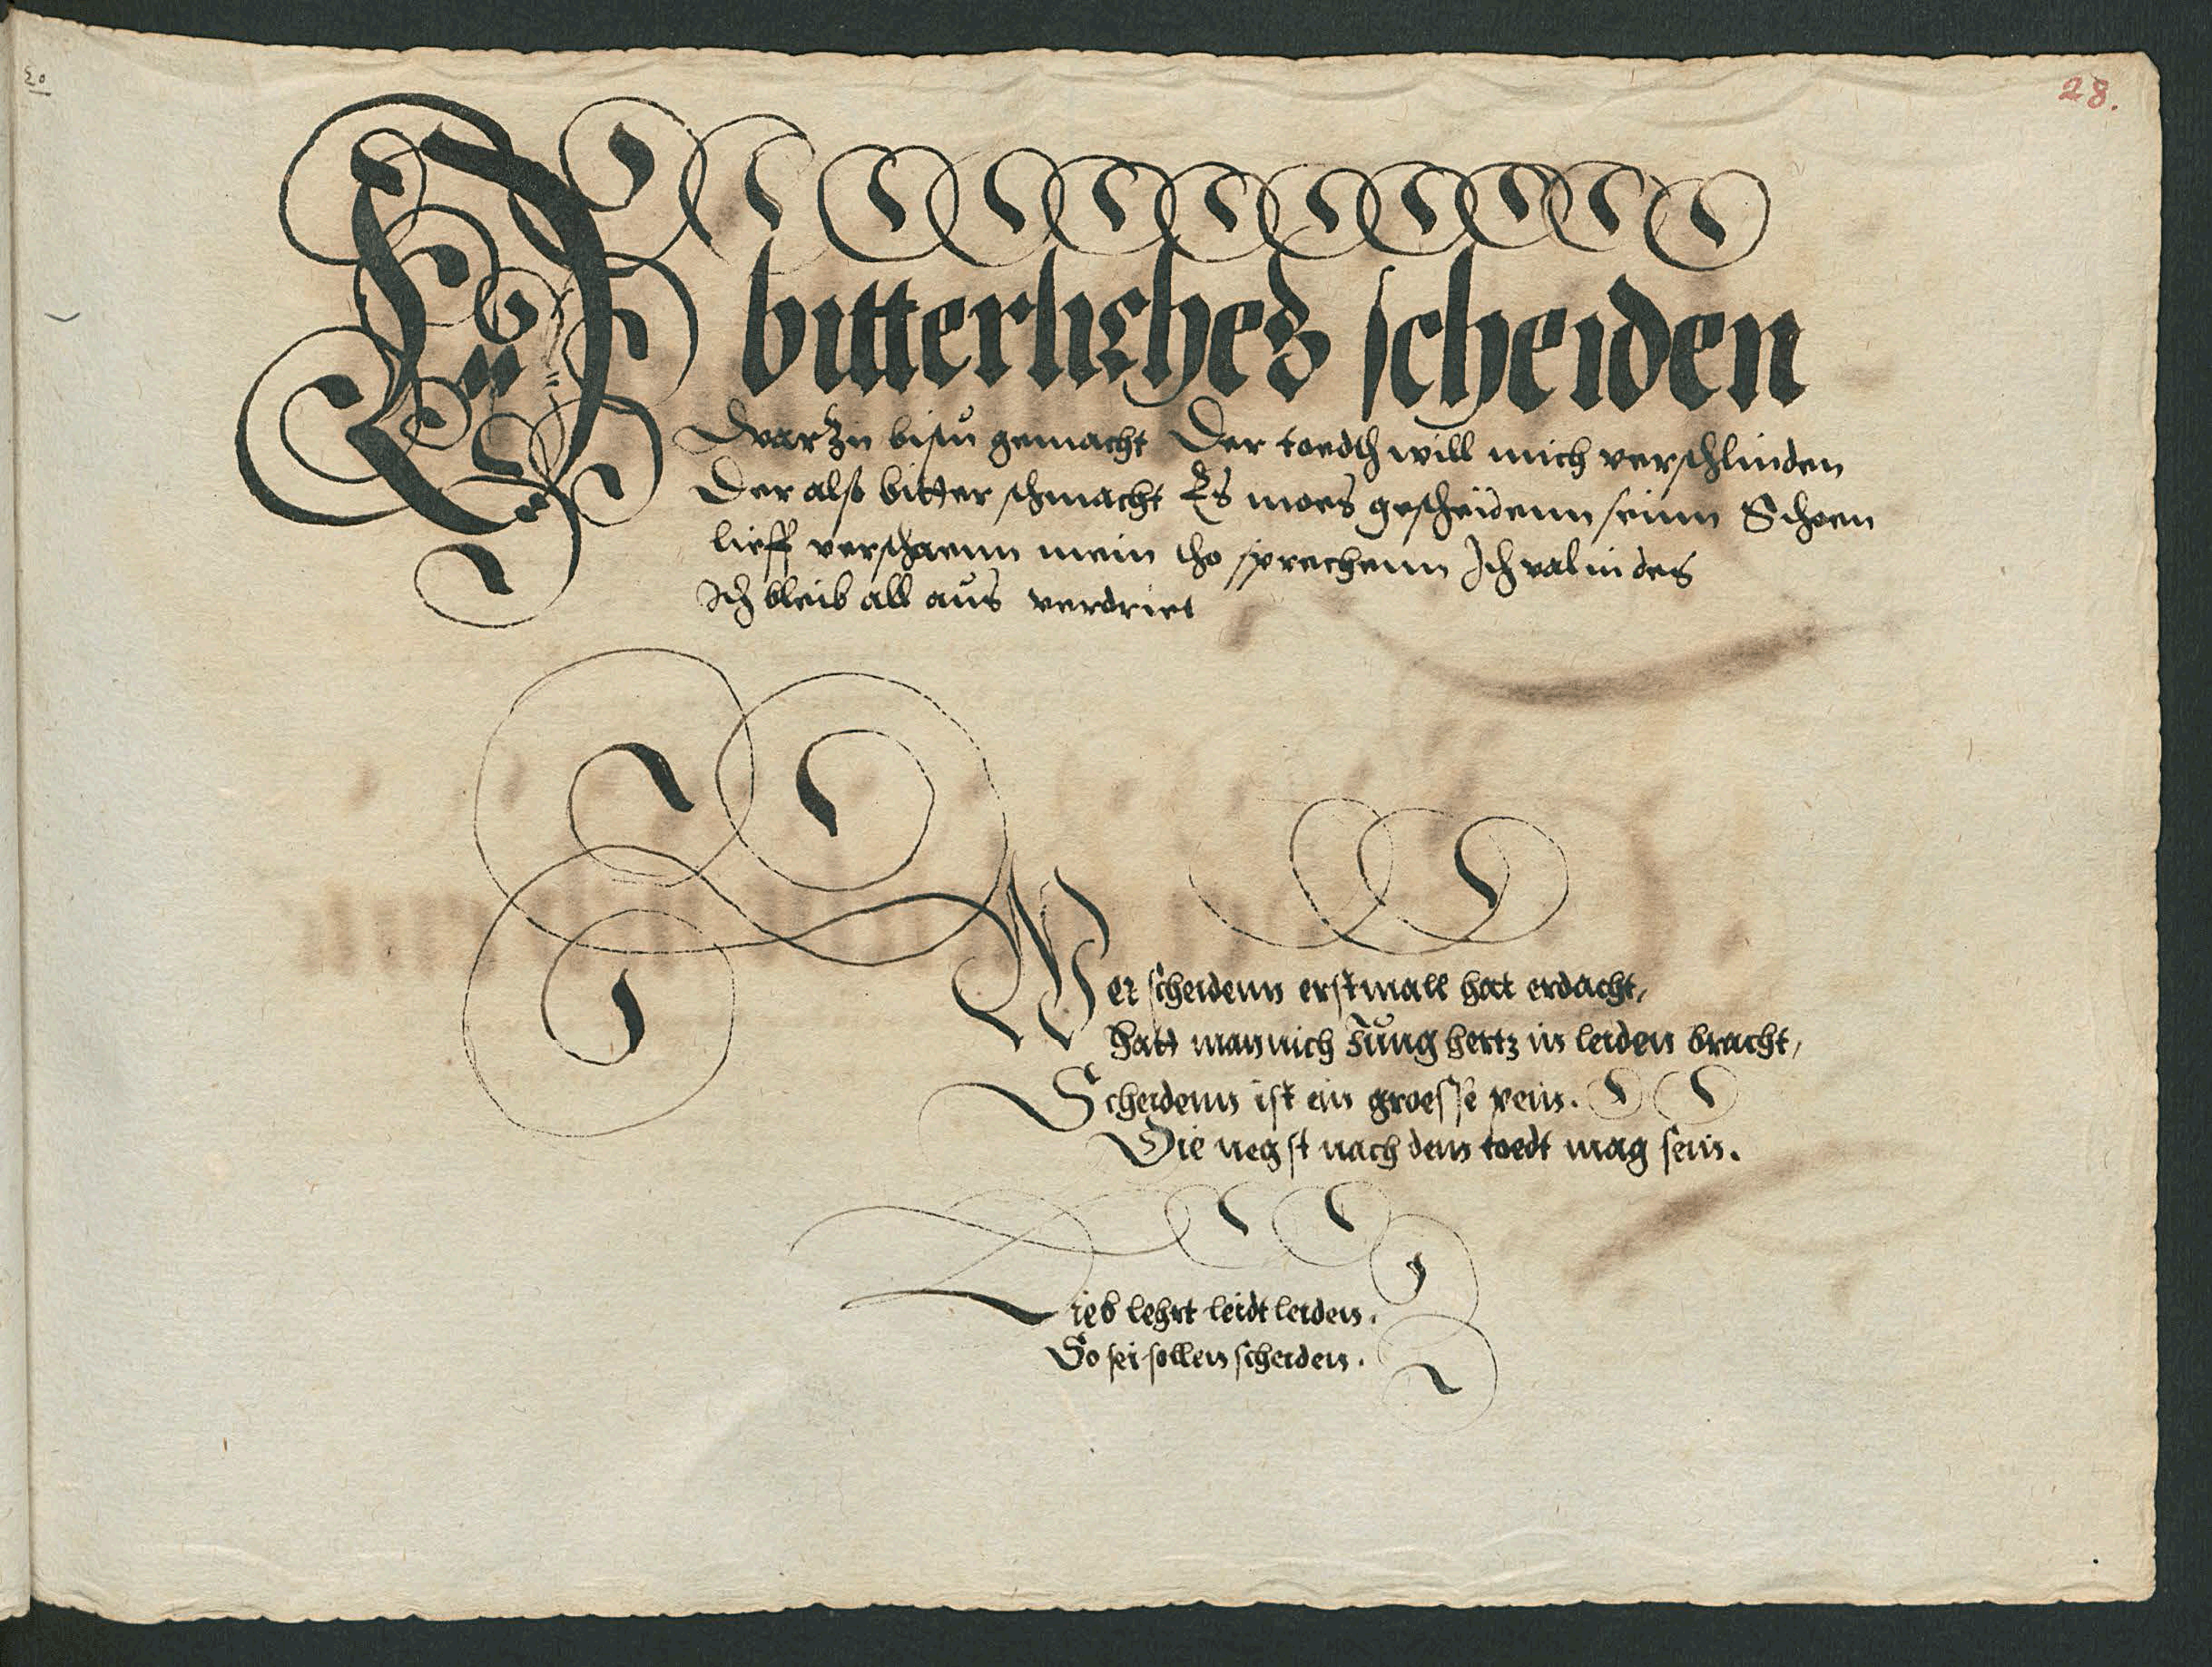 28.
O bitterliches scheiden
Warzu bistu gemacht Der toedth will mich verschlinden
Der also bitter schmacht Es moes gescheidenn seinn Schoen
lieff verschoenn mein tho sprechenn Ich val in des
Ich bleib all aus verdriet
Wer scheidenn erstmall hat erdacht,
Hatt mannich Jung hertz in leiden bracht,
Scheidenn ist ein groesse pein.
Die negst nach dem toedt mag sein.
Lieb lehrt leidt leiden.
So sei sollen scheiden.